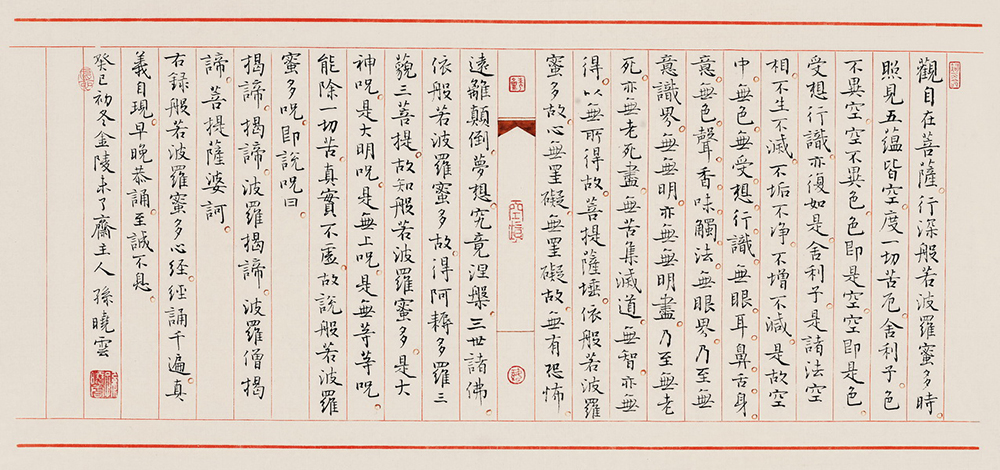 觀自在菩薩行深般若波羅蜜多時
照見五蘊皆空度一切苦厄舍利子色
不異空空不異色色即是空空即是色
受想行識亦復如是舍利子是諸法空
相不生不滅不垢不净不增不減是故空
中無色無受想行識無眼耳鼻舌身
意無色聲香味觸法無眼界乃至無
意識界無無明亦無無明盡乃至無老
死亦無老死盡無苦集滅道無智亦無
得以無所得故菩提薩埵依般若波羅
蜜多故心無罣礙無罣礙故無有恐怖
遠離顛倒夢想究竟涅槃三世諸佛
依般若波羅蜜多故得阿耨多羅三
藐三菩提故知般若波羅蜜多是大
神咒是大明咒是無上咒是無等等咒
能除一切苦真實不虛故說般若波羅
蜜多咒即說咒曰
揭諦揭諦波羅揭諦波羅僧揭
諦菩提薩婆訶
右録般若波羅蜜多心經經誦千遍真
義自現早晚恭誦至誠不息
癸巳初冬金陵未了齋主人孫曉雲